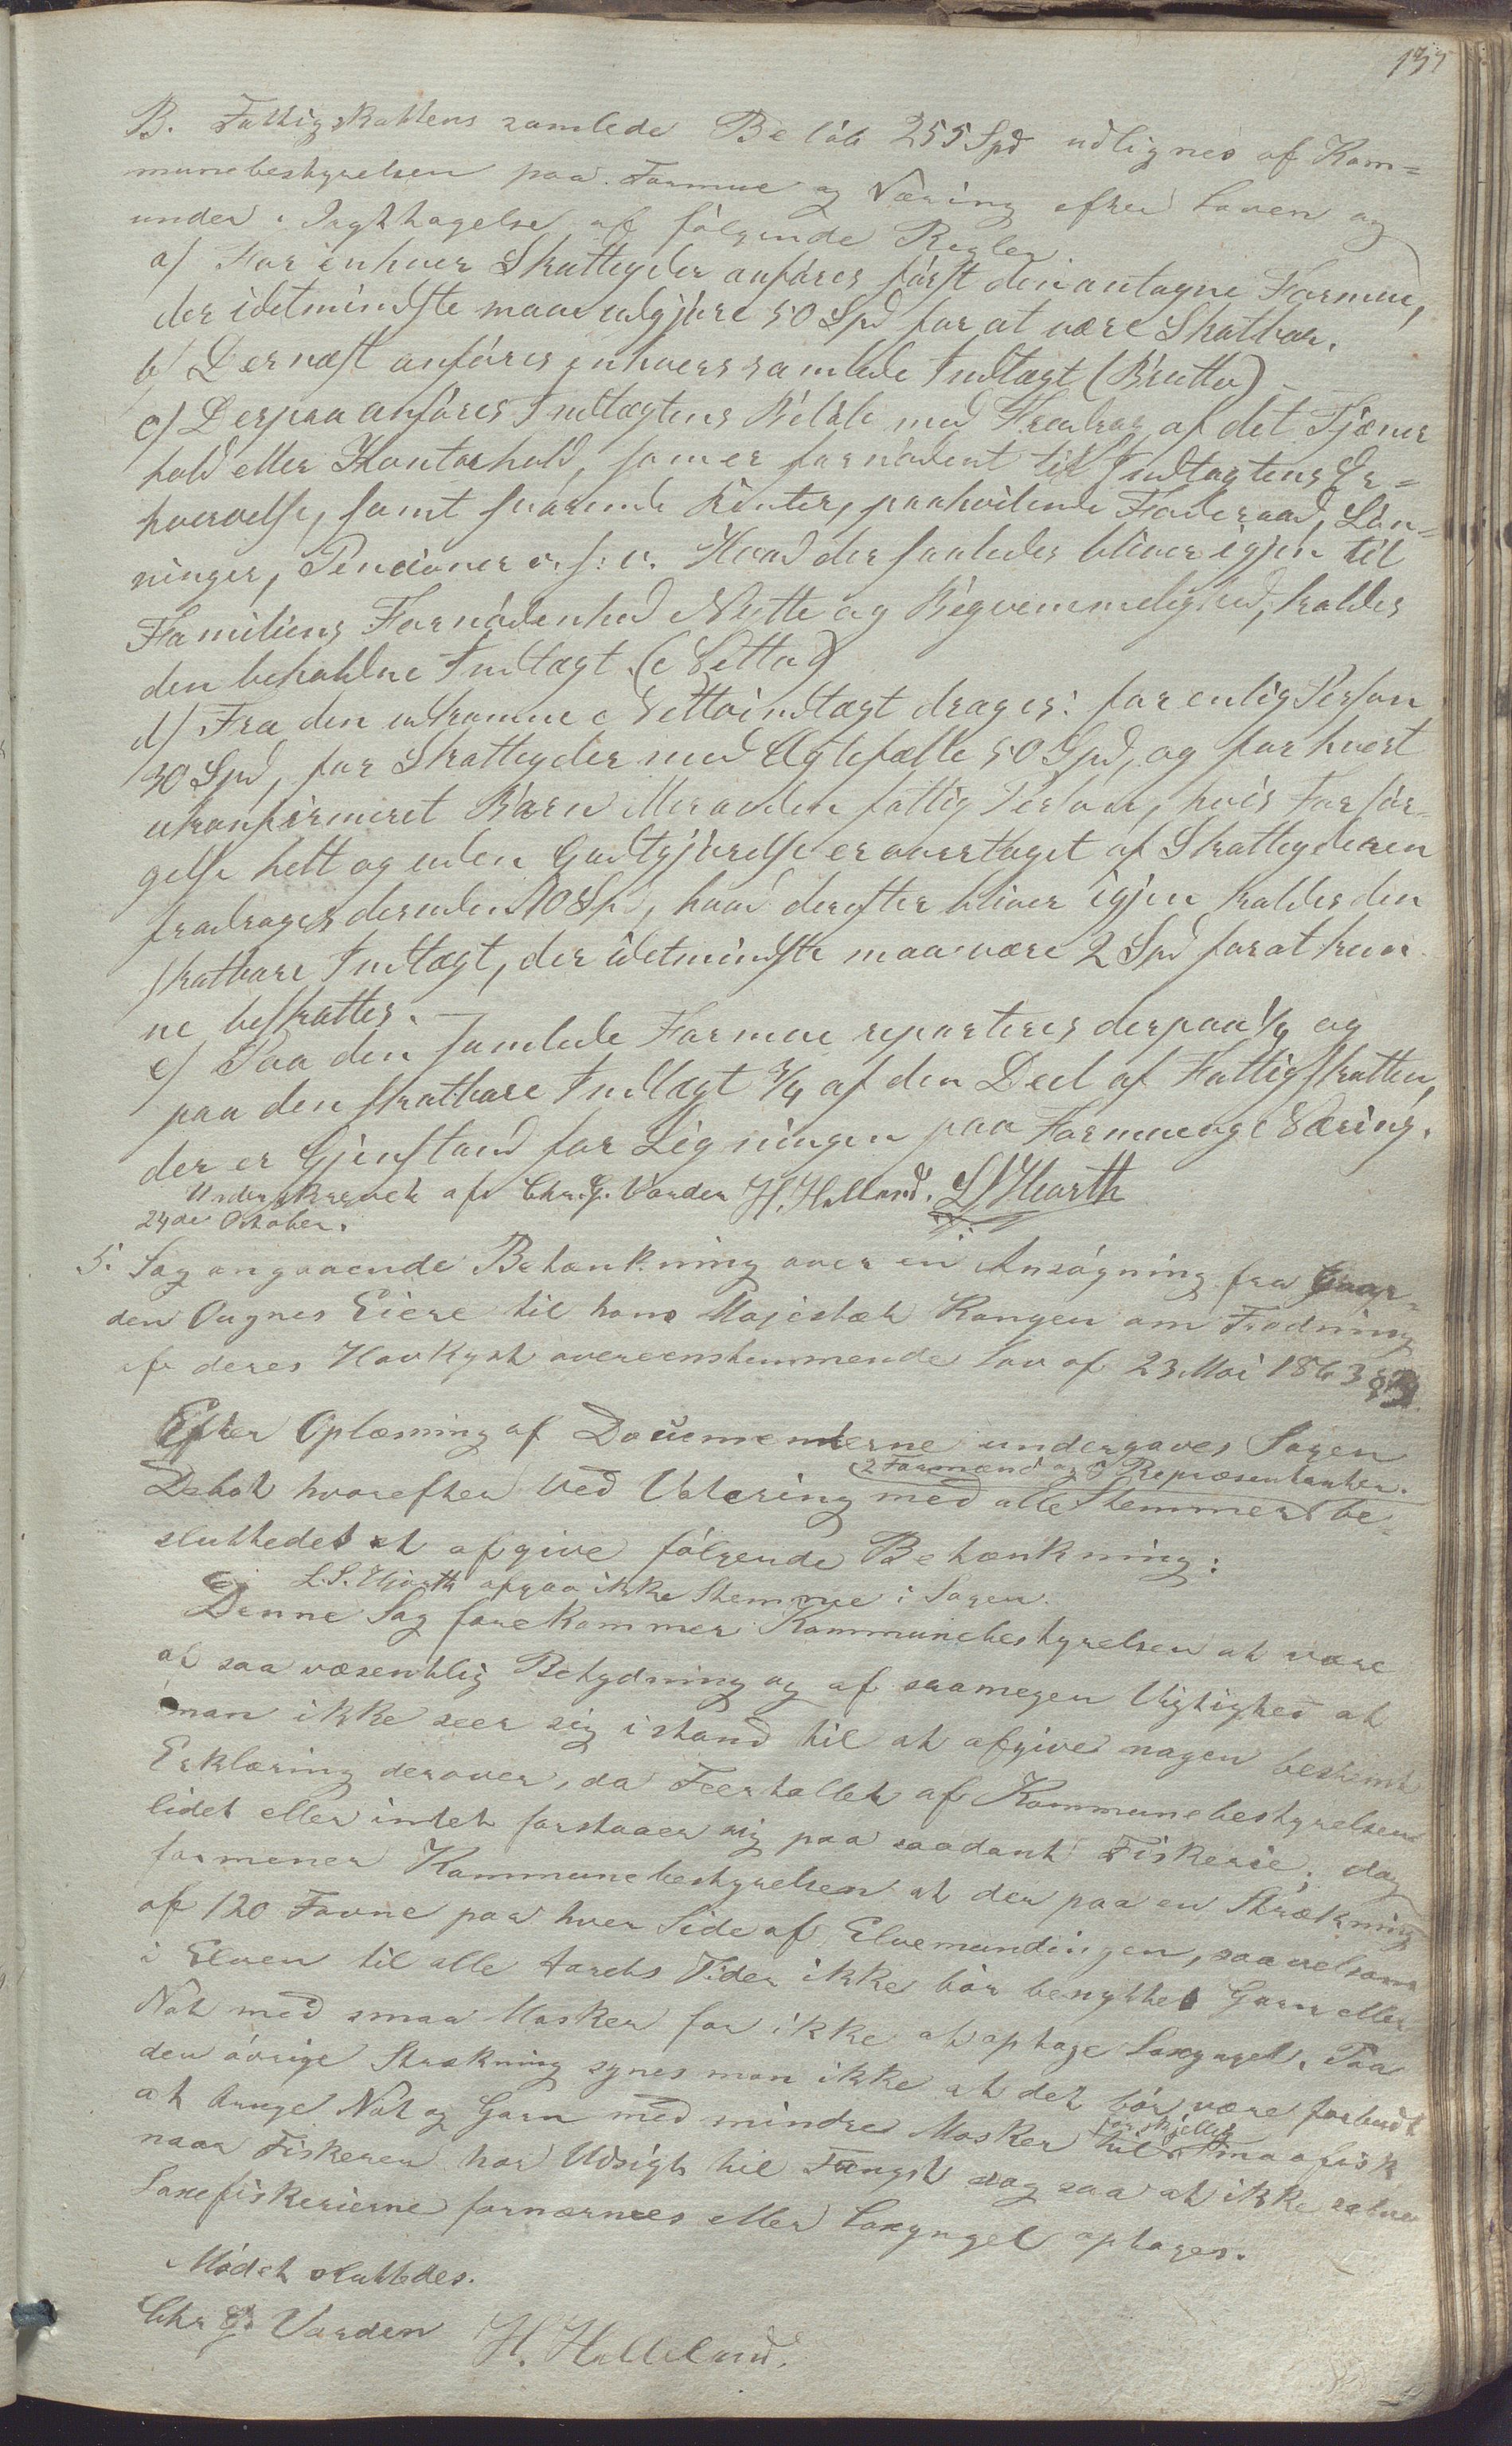 B. Fattigskattens samlede Beløb 255 Spd udlignes af Kom=
munebestyrelsen paa Formue og Næring efter Loven og
under Iagttagelse af følgende Regler
a) For enhver Skatteyder anføres først den antagne Formue,
der idetmindste maa udgjøre 50 Spd for at være Skatbar.
b) Dernæst anføres enhvers samlede Indtægt (Brutto)
c) Derpaa anføres Indtægtens Beløb med Fradrag af det Tjener
hold eller Kontorhold, som er fornødent til Indtægtens Er=
hvervelse, samt svarende Renter, paahvilende Føderaad, Løn=
ninger, Pensioner o. s. v. Hvad der saaledes bliver igjen til
Familiens Fornødenhed Nytte og Beqvemmelighed, kaldes
den beholdne Indtægt (Netto)
d) Fra den udkomne Nettoindtægt drages: for enlig Person
30 Spd, for Skatteyder med Ægtefælle 50 Spd, og for hvert
ukonfirmeret Barn eller anden fattig Person, hvis Forsør=
gelse helt og uden Godtgjørelse er overtaget af Skatteyderen
fradrages desuden 10 Spd, hvad derefter bliver igjen kaldes den
skatbare Indtægt, der idetmindste maa være 2 Spd for at kun
ne beskattes. —
e) Paa den samlede Formue reparteres derpaa 1/4 og
paa den skatbare Indtægt 3/4 af den Deel af Fattigskatten,
der er Gjenstand for Ligningen paa Formue og Næring.
Underskrevet af Chr. G. Varden H. Helland. L S Hiorth
24de Oktober.
5. Sag angaaende Betænkning over en Ansøgning fra Gaar=
den Ougnes Eiere til hans Majestæt Kongen om Fredning
af deres Havkyst overeenstemmende Lov af 23 Mai 1863
Efter Oplæsning af Documenterne undergaves Sagen
(2 Formænd og 3 Repræsentanter.
Debat hvorefter ved Votering med alle Stemmer be=
sluttedes at afgive følgende Betænkning:
L. S. Hjorth afgav ikke Stemme i Sagen.
Denne Sag forekommer Kommunebestyrelsen at være
af saa væsentlig Betydning og af saamegen Vigtighed at
man ikke seer sig istand til at afgive nogen bestemt
Erklæring derover, da Feertallet af Kommunebestyrelsen
lidet eller intet forstaaer sig paa saadant Fiskerie; dog
formener Kommunebestyrelsen at der paa en Strækning
af 120 Favne paa hver Side af Elvemundingen, saavelsom
i Elven til alle Aarets Tider ikke bør benyttes Garn eller
Not med smaa Masker for ikke at optage Laxyngel. Paa
den øvrige Strækning synes man ikke at det bør være forbudt
at bruge Not og Garn med mindre Masker til forskjellig Smaafisk
naar Fiskeren har Udsigt til Fangst dog saa at ikke selve
Laxefiskerierne fornærmes eller Laxyngel optages.
Mødet sluttedes.
Chr G. Varden H. Helleland.